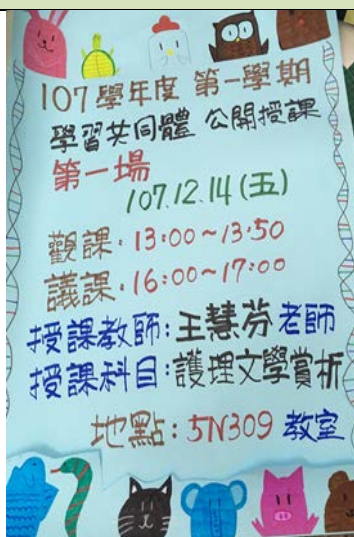 107學年度 第一學期
學習共同體 公開授課
第一場
107.12.14(五)
觀課:13:00~13:50
議課:16:00~17:00
授課教師:王慧芬老師
授課科目:護理文學賞析
地點:5N309 教室